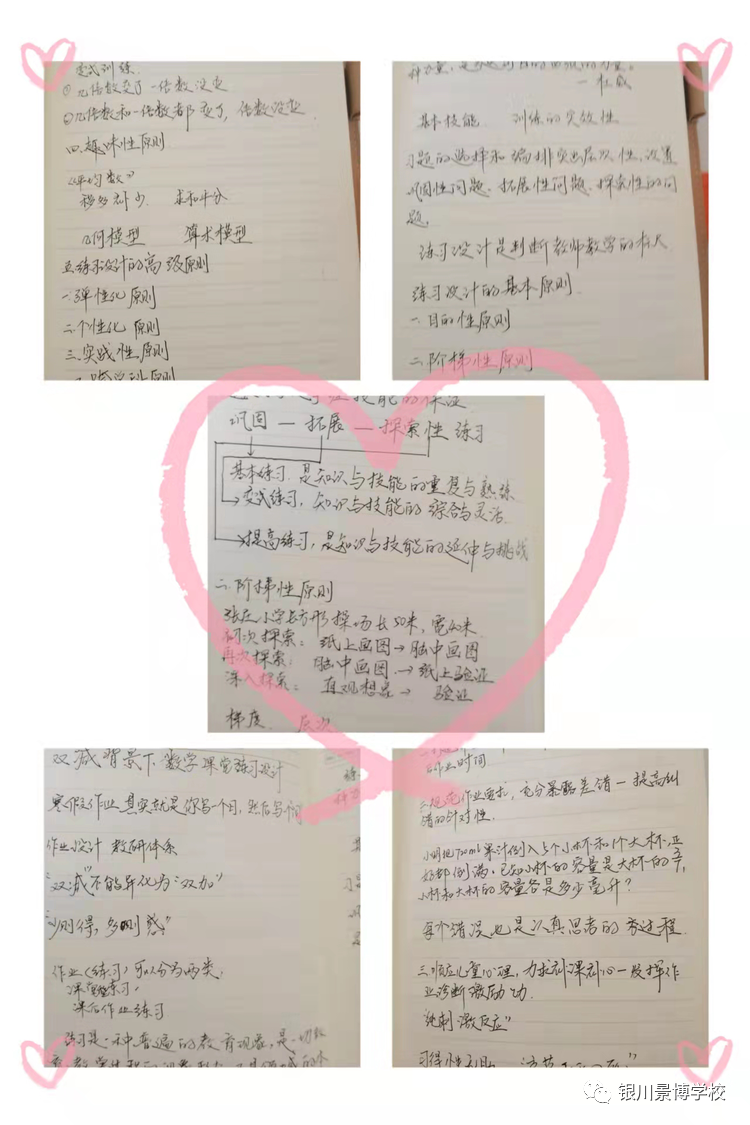 变式训练.
①几倍数变了一倍数没变
②几倍数和一倍数都变了,倍数没变
四.趣味性原则
《平均数》
移多补少. 求和平分
几何模型 算术模型
五.练习设计的高级原则
一.弹性化原则
二.个性化原则
三.实践性原则
一杜威
基本技能. 训练的实效性
习题的选择和编排突出层次性,设置
巩固性问题、拓展性问题、探索性的问
题.
练习设计是判断教师教学的标尺
练习设计的基本原则.
一.目的性原则
二.阶梯性原则
巩固一拓展一探索性练习
基本练习.是知识与技能的重复与熟练
变式练习,知识与技能的综合与灵活.
提高练习,是知识与技能的延伸与挑战
二.阶梯性原则
张庄小学长方形操场长50米,宽40米.
初次探索:纸上画图→脑中画图
再次探索:脑中画图→纸上验证
深入探索:直观想象→验证
梯度. 层次
双减背景下数学课堂练习设计
寒假作业其实就是你写一个月,然后写一个月
作业设计 教研体系
"双减"不能异化为"双加"
"少则得,多则惑"
作业(练习)可以分为两类:
课堂练习,
课后作业练习
练习是一种普遍的教育现象,是一切教
作业时间
二.规范作业要求,充分暴露差错一提高纠
错的针对性.
小明把720ml果汁倒入5个小杯和1个大杯,正
好都倒满.已知小杯的容量是大杯的
小杯和大杯的容量各是多少毫升?
每个错误也是认真思考的旁过程.
三.顺应儿童心理,力求补课补心一发挥作
业诊断激励功.
"纯刺激反应"
银川景博学校